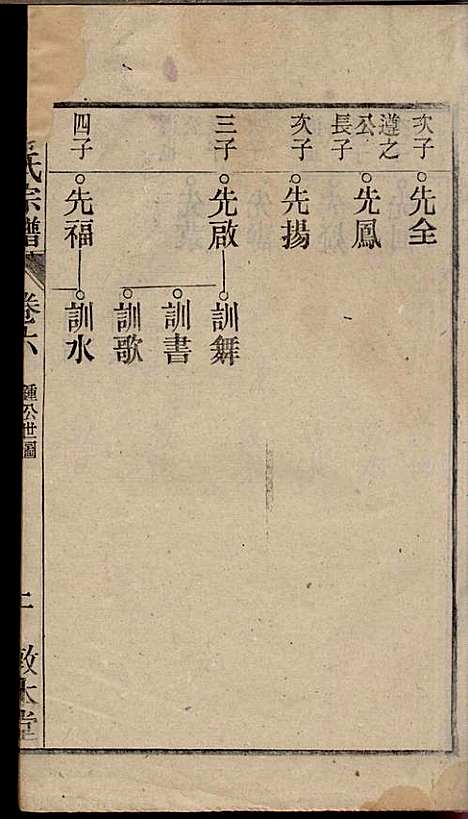 次子
先全
遵之公長子
先鳳
次子
先揚
三子
先啟
訓舞
訓書
訓歌
四子
先福
訓水
氏宗譜
卷六
鍾公世圖
敦本堂